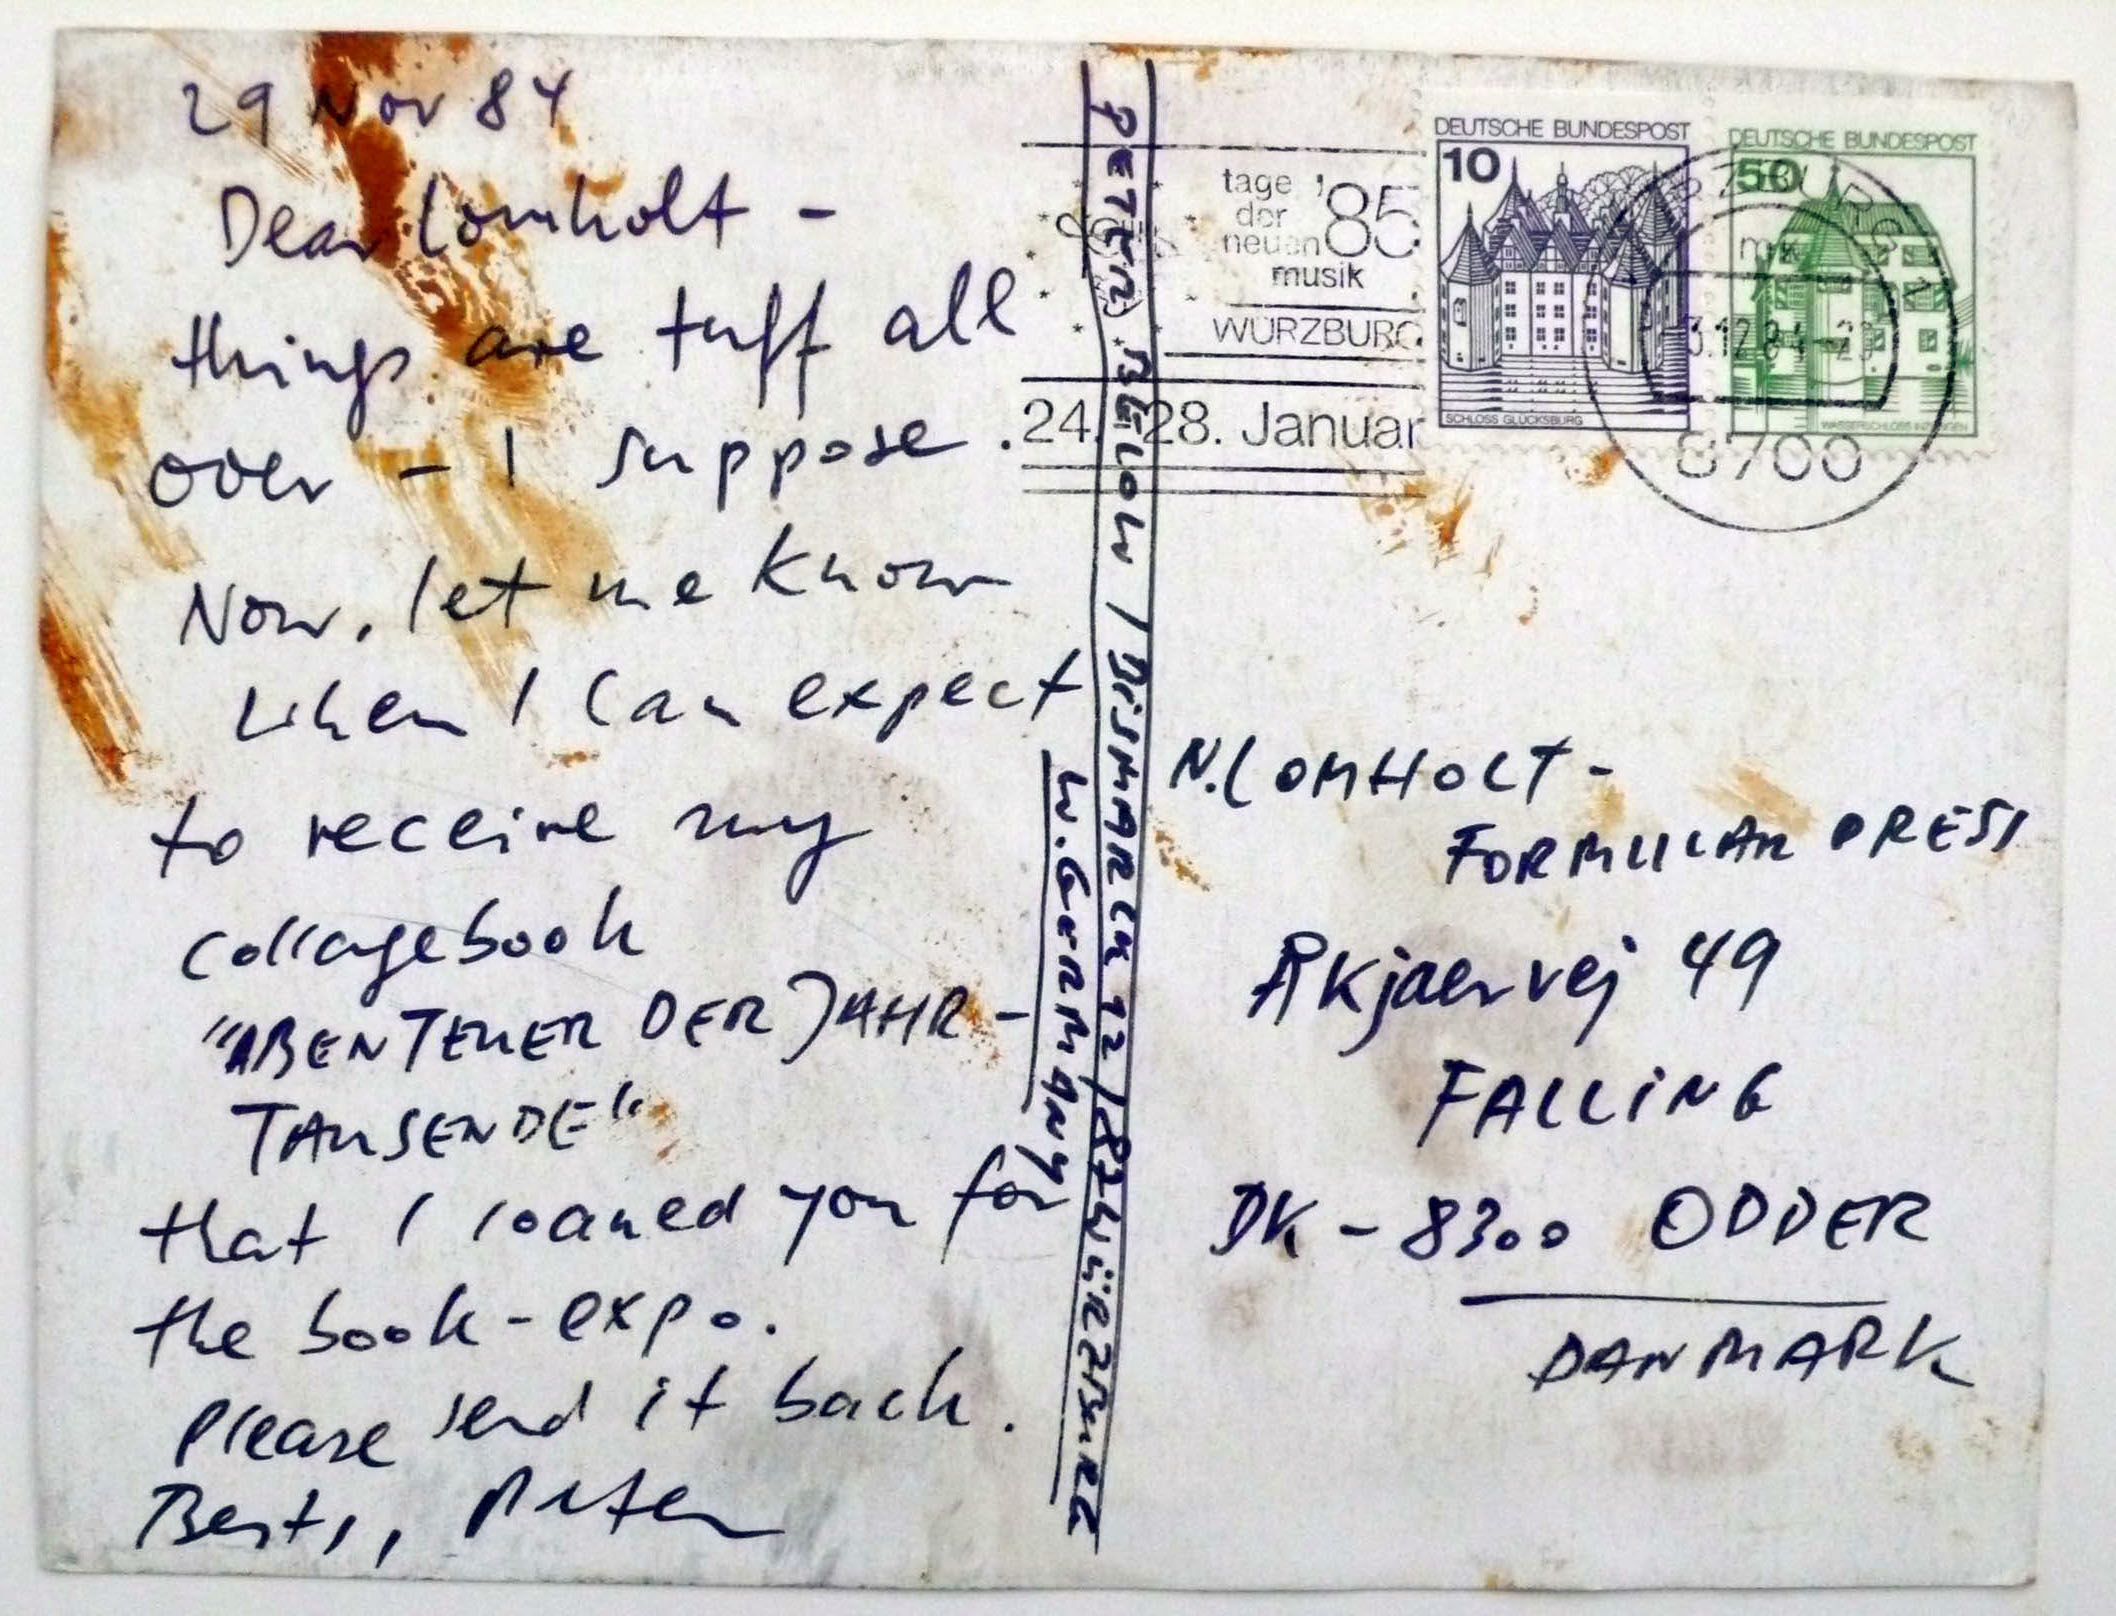 29 Nov 84
Dear Lomholt -
things are tuff all
over - I suppose.
Now, let me know
when I can expect
to receive my
collagebook
"ABENTEUER DER JAHR-
TAUSENDE"
that I loaned you for
the book-expo.
Please send it back.
Bests, Peter
PETER BELOW / BISMARCK 12 / 87 WÜRZBURG
W. GERMANY
tage '85
der
neuen
musik
WÜRZBURG
24. 28. Januar
DEUTSCHE BUNDESPOST
10
SCHLOSS GLÜCKSBURG
DEUTSCHE BUNDESPOST
50
WASSERSCHLOSS INZLINGEN
mk
3.12.84-20
8700
N. LOMHOLT -
FORMULAR PRESS
Åkjaervej 49
FALLING
DK - 8300 ODDER
DANMARK